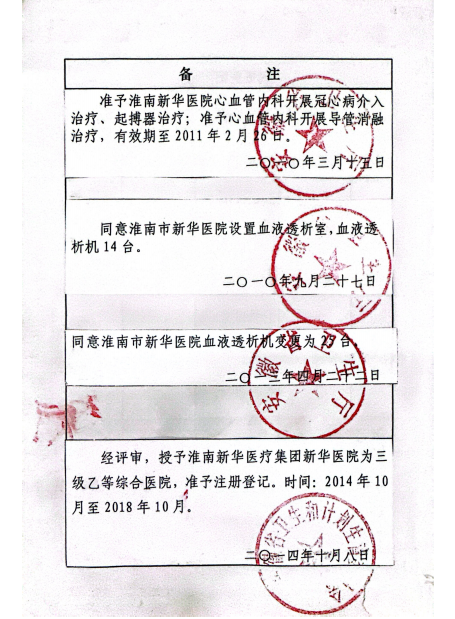 备 注
准予淮南新华医院心血管内科开展冠心病介入
治疗、起搏器治疗；准予心血管内科开展导管消融
治疗，有效期至 2011 年 2 月 26 日。
二〇一〇年三月十五日
同意淮南市新华医院设置血液透析室，血液透
析机 14 台。
二〇一〇年九月二十七日
同意淮南市新华医院血液透析机变更为 25 台。
二〇一三年四月二十三日
安徽省卫生厅
经评审，授予淮南新华医疗集团新华医院为三
级乙等综合医院，准予注册登记。时间：2014 年 10
月至 2018 年 10 月。
二〇一四年十月八日